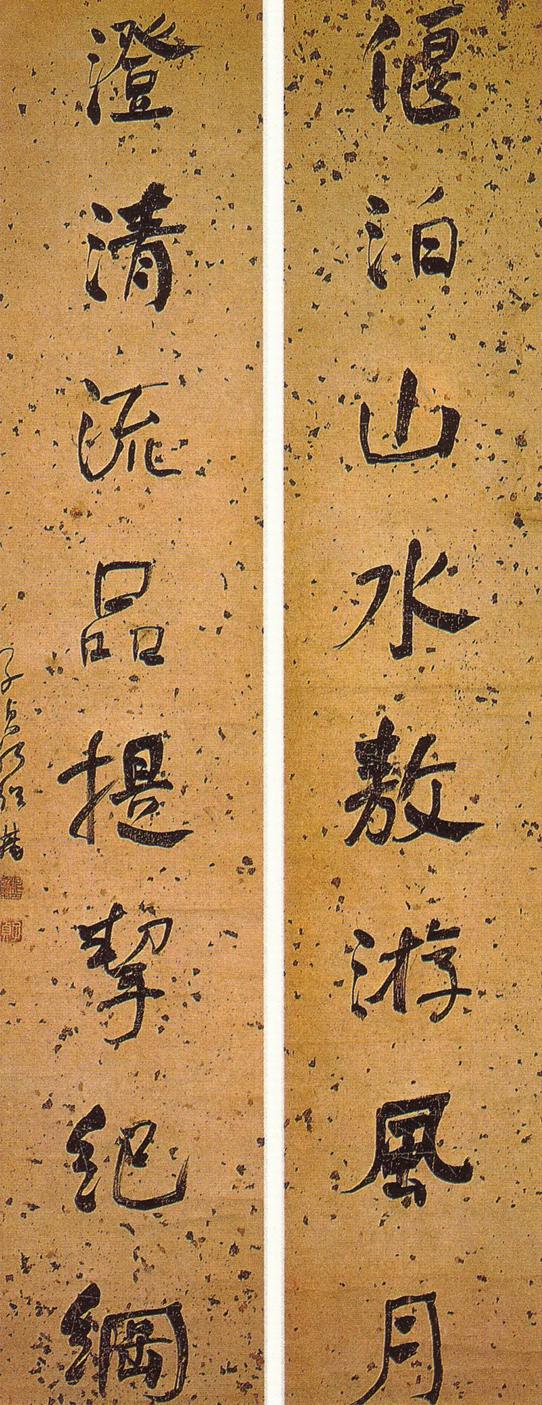 偃泊山水敖游風月
澄清流品提挈紀綱
子貞何紹基